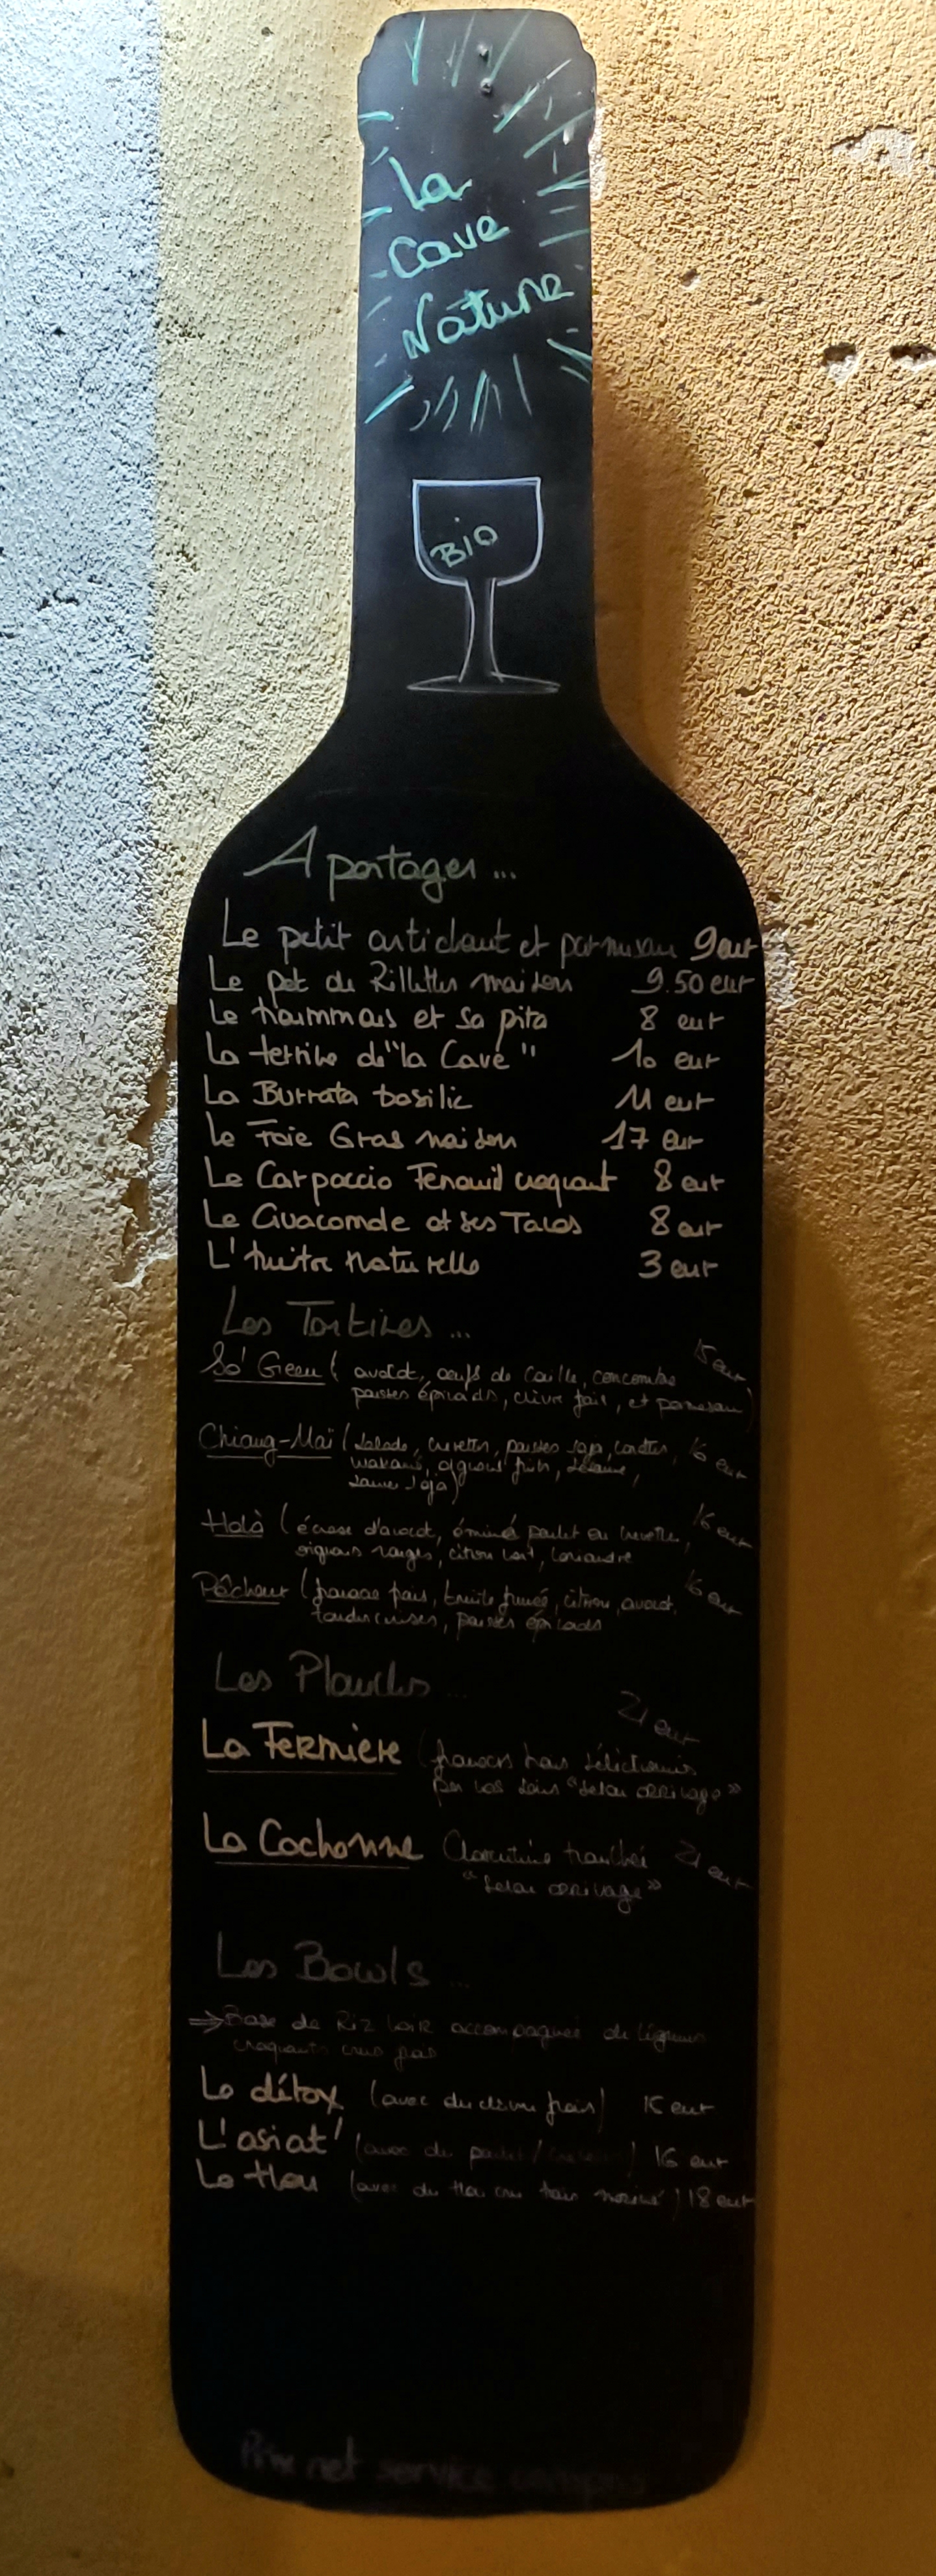 La
Cave
Nature
BiO
A partager ...
Le petit artichaut et parmesan 9 eur
Le pot de Rillettes maison 9.50 eur
Le hoummous et sa pita 8 eur
La terrine de "la Cave" 10 eur
La Burrata basilic 11 eur
Le Foie Gras maison 17 eur
Le Carpaccio Fenouil croquant 8 eur
Le Guacomole et ses Tacos 8 eur
L'huitre naturelle 3 eur
Les Tartines ...
So' Green ( avocat, oeufs de Caille, concombre 15 eur
pousses épinards, chèvre frais, et parmesan)
Chiang-Maï (Salade, crevettes, pousses soja, carottes, 16 eur
wakamé, oignons frits, sésame,
sauce soja)
Holà ( écrasé d'avocat, émincé poulet ou crevettes, 16 eur
oignons rouges, citron vert, coriandre
Pêcheur ( fromage frais, truite fumée, citron, avocat, 16 eur
pousses épinards
Les Planches ...
21 eur
La Fermière (fromages sélectionnés
par nos soins "selon arrivage"
La Cochonne Charcuterie tranchée 21 eur
"selon arrivage"
Les Bowls ...
⇒ Base de Riz noir accompagnée de légumes
croquants crus frais
Le détox (avec du chèvre frais) 15 eur
L'asiat' (avec du poulet / ) 16 eur
Le thou (avec du thon cru frais mariné) 18 eur
Prix net service compris